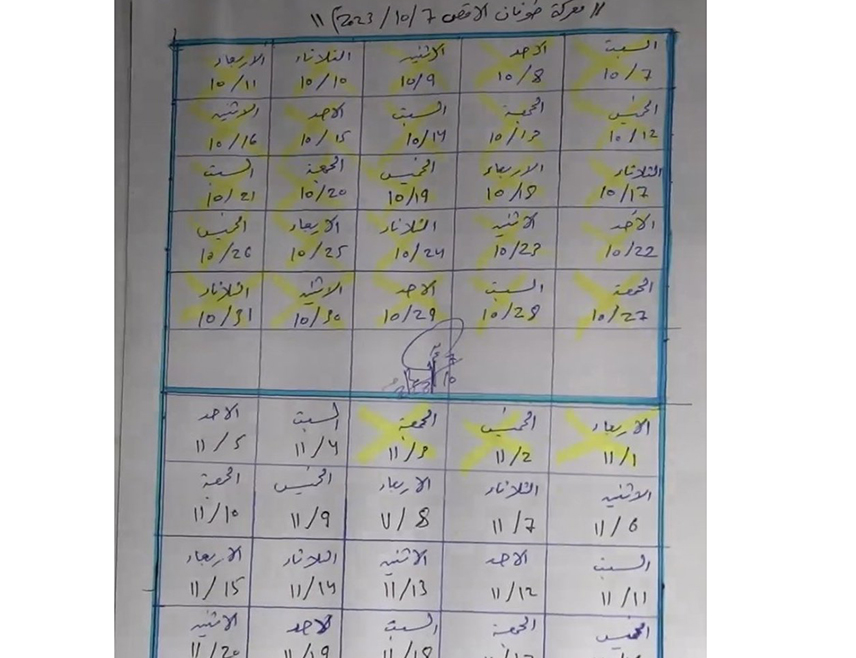 // معركة طوفان الاقصى 2023/10/7 //
السبت الاحد الاثنين الثلاثاء الاربعاء
10/7 10/8 10/9 10/10 10/11
الخميس الجمعة السبت الاحد الاثنين
10/12 10/13 10/14 10/15 10/16
الثلاثاء الاربعاء الخميس الجمعة السبت
10/17 10/18 10/19 10/20 10/21
الأحد الاثنين الثلاثاء الاربعاء الخميس
10/22 10/23 10/24 10/25 10/26
الجمعة السبت الاحد الاثنين الثلاثاء
10/27 10/28 10/29 10/30 10/31
الاربعاء الخميس الجمعة السبت الاحد
11/1 11/2 11/3 11/4 11/5
الاثنين الثلاثاء الاربعاء الخميس الجمعة
11/6 11/7 11/8 11/9 11/10
السبت الاحد الاثنين الثلاثاء الاربعاء
11/11 11/12 11/13 11/14 11/15
الخميس الجمعة السبت الاحد الاثنين
11/18 11/19 11/20